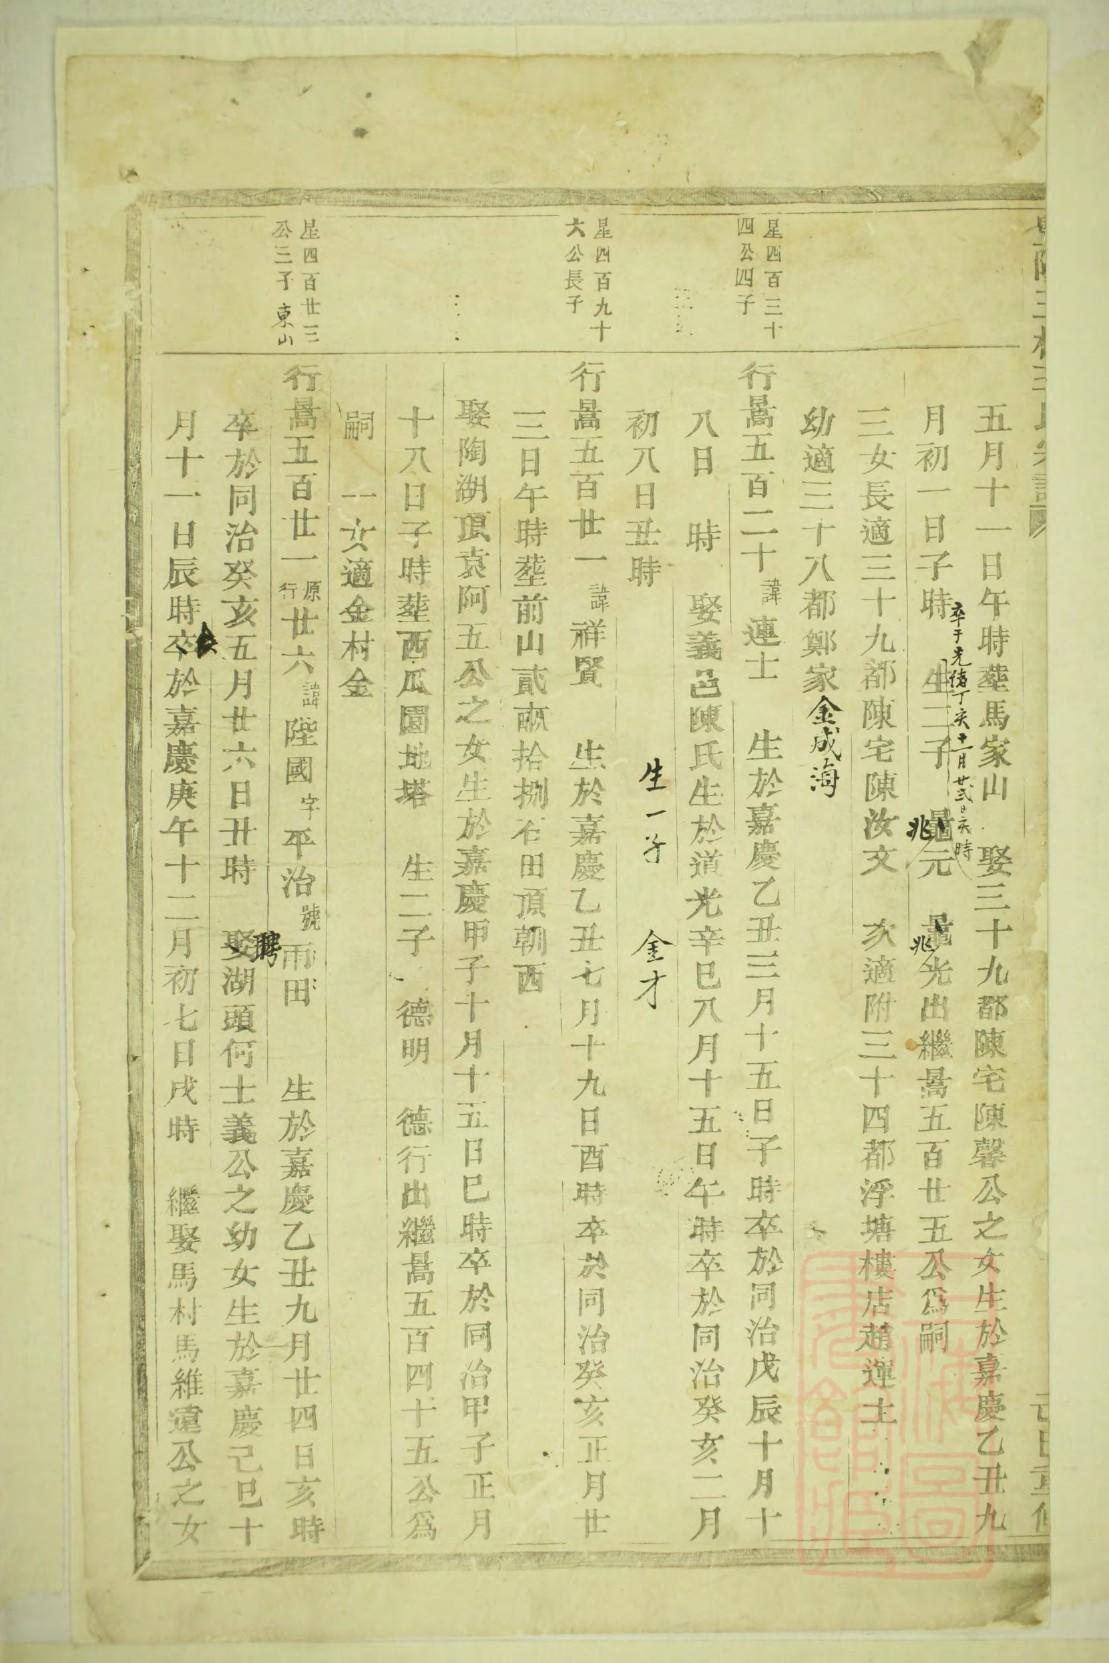 五月十一日午時塟馬家山 娶三十九都陳宅陳馨公之女生於嘉慶乙丑九
卒于光緒丁亥十一月廿弍日亥時
月初一日子時 生二子 兆元 兆光出繼暠五百廿五公爲嗣
三女長適三十九都陳宅陳汝文 次適附三十四都浮塘樓店趙運土
幼適三十八都鄭家金成海
星四百三十
四公四子
行暠五百二十 諱 連士 生於嘉慶乙丑三月十五日子時卒於同治戊辰十月十
八日 時 娶義邑陳氏生於道光辛巳八月十五日午時卒於同治癸亥二月
初八日丑時 生一子 金才
星四百九十
六公長子
行暠五百廿一 諱 祥賢 生於嘉慶乙丑七月十九日酉時卒於同治癸亥正月廿
三日午時塟前山貳畝拾捌石田頂朝西
娶陶湖頂袁阿五公之女生於嘉慶甲子十月十五日巳時卒於同治甲子正月
十八日子時塟西瓜園地塔 生二子 德明 德行出繼暠五百四十五公爲
嗣 一女適金村金
星四百廿三
公三子 東山
行暠五百廿一 原行 廿六 諱 陞國 字 平治 號 雨田 生於嘉慶乙丑九月廿四日亥時
卒於同治癸亥五月廿六日丑時 娶聘湖頭何士義公之幼女生於嘉慶己巳十
月十一日辰時卒於嘉慶庚午十二月初七日戌時 繼娶馬村馬維遠公之女